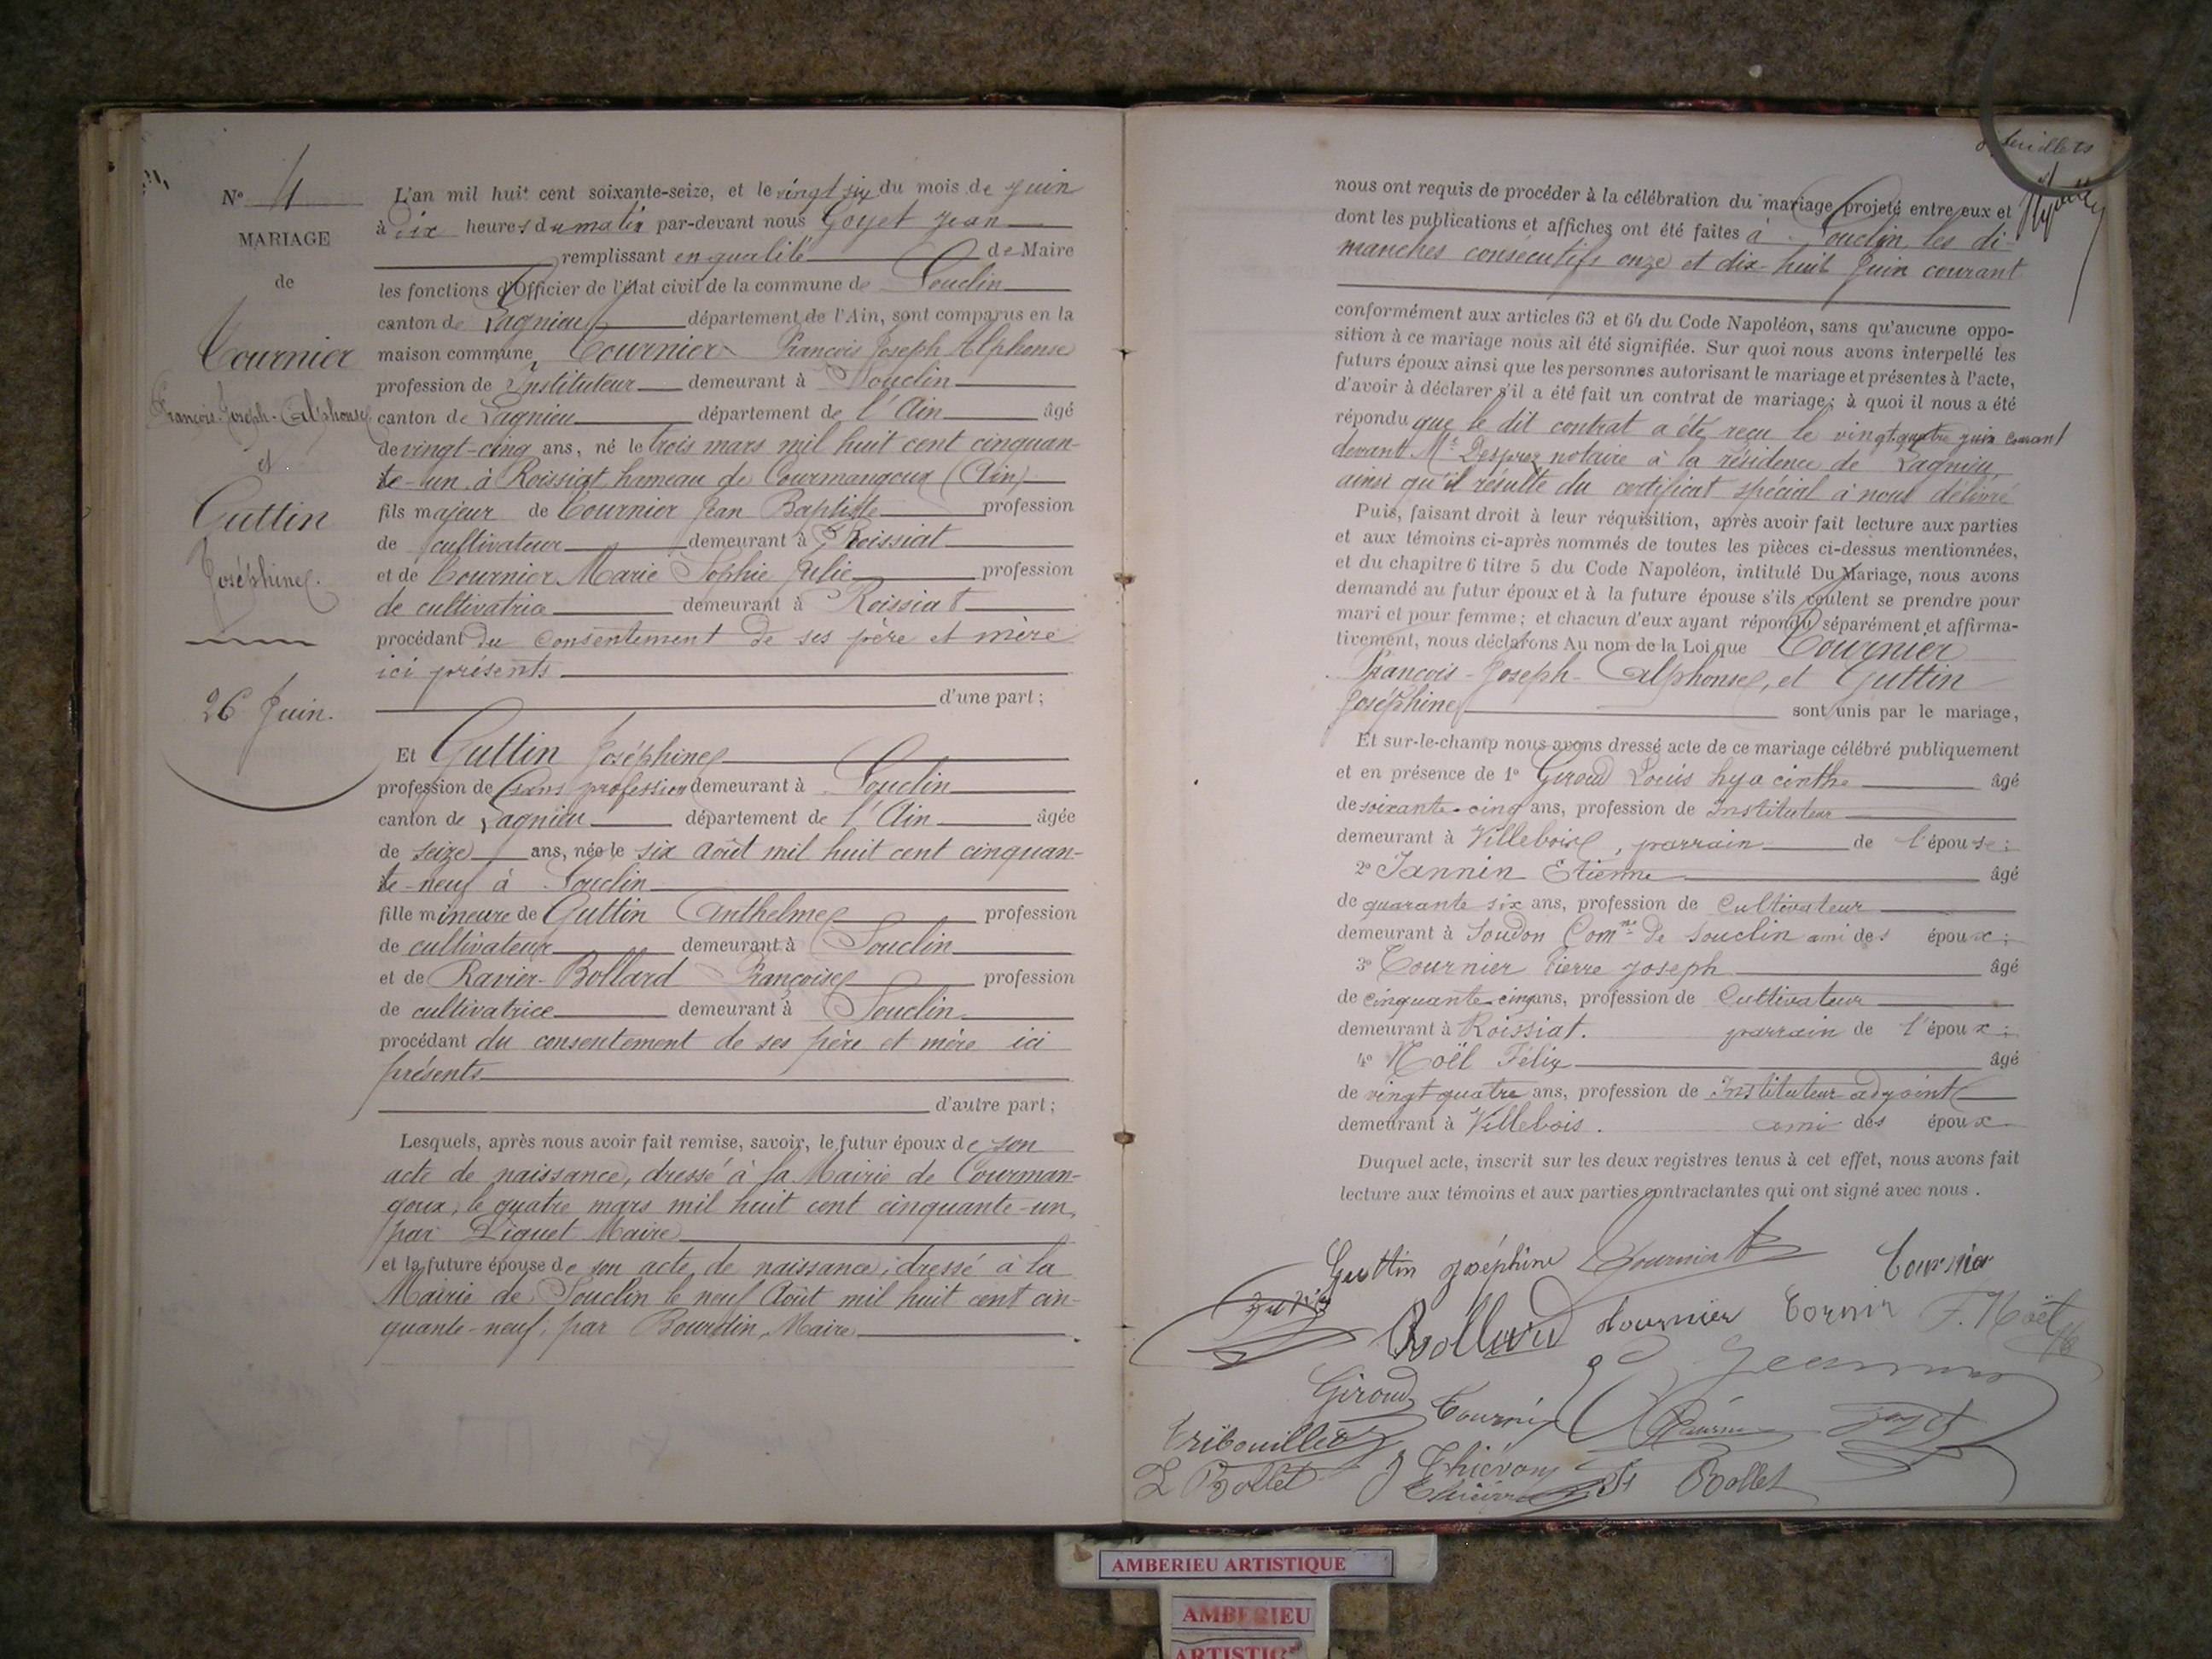 N° 4
MARIAGE
de
Tournier
François-Joseph-Alphonse
et
Guttin
Joséphine.
26 Juin.
L'an mil huit cent soixante-seize, et le vingt six du mois de juin
à dix heures du matin par-devant nous Goyet Jean
remplissant en qualité de Maire
les fonctions d'Officier de l'état civil de la commune de Souclin
canton de Lagnieu département de l'Ain, sont comparus en la
maison commune, Tournier François Joseph Alphonse
profession de Instituteur demeurant à Souclin
canton de Lagnieu département de l'Ain âgé
de vingt-cinq ans, né le trois mars mil huit cent cinquan-
te-un à Roissiat hameau de Courmangoux (Ain)
fils majeur de Tournier Jean Baptiste profession
de cultivateur demeurant à Roissiat
et de Tournier Marie Sophie Julie profession
de cultivatrice demeurant à Roissiat
procédant du consentement de ses père et mère
ici présents
d'une part ;
Et Guttin Joséphine
profession de sans profession demeurant à Souclin
canton de Lagnieu département de l'Ain âgée
de seize ans, née le six Août mil huit cent cinquan-
te-neuf à Souclin
fille mineure de Guttin Anthelme profession
de cultivateur demeurant à Souclin
et de Ravier-Bollard Françoise profession
de cultivatrice demeurant à Souclin
procédant du consentement de ses père et mère ici
présents
d'autre part ;
Lesquels, après nous avoir fait remise, savoir, le futur époux de son
acte de naissance, dressé à la Mairie de Courman-
goux, le quatre mars mil huit cent cinquante-un,
par Piquet Maire
et la future épouse de son acte de naissance, dressé à la
Mairie de Souclin le neuf Août mil huit cent cin-
quante-neuf, par Bourdin, Maire
feuillets
nous ont requis de procéder à la célébration du mariage projeté entre eux et
dont les publications et affiches ont été faites à Souclin les di-
manches consécutifs onze et dix-huit Juin courant
conformément aux articles 63 et 64 du Code Napoléon, sans qu'aucune oppo-
sition à ce mariage nous ait été signifiée. Sur quoi nous avons interpellé les
futurs époux ainsi que les personnes autorisant le mariage et présentes à l'acte,
d'avoir à déclarer s'il a été fait un contrat de mariage ; à quoi il nous a été
répondu que le dit contrat a été reçu le vingt-quatre juin courant
devant Me Desprez notaire à la résidence de Lagnieu
ainsi qu'il résulte du certificat spécial à nous délivré
Puis, faisant droit à leur réquisition, après avoir fait lecture aux parties
et aux témoins ci-après nommés de toutes les pièces ci-dessus mentionnées,
et du chapitre 6 titre 5 du Code Napoléon, intitulé Du Mariage, nous avons
demandé au futur époux et à la future épouse s'ils veulent se prendre pour
mari et pour femme ; et chacun d'eux ayant répondu séparément et affirma-
tivement, nous déclarons Au nom de la Loi que Tournier
François-Joseph-Alphonse, et Guttin
Joséphine sont unis par le mariage,
Et sur-le-champ nous avons dressé acte de ce mariage célébré publiquement
et en présence de 1° Giroud Louis hyacinthe âgé
de soixante-cinq ans, profession de Instituteur
demeurant à Villebois, parrain de l'épouse ;
2° Jannin Etienne âgé
de quarante six ans, profession de Cultivateur
demeurant à Soudon Comne de Souclin ami des époux ;
3° Tournier Pierre Joseph âgé
de cinquante-cinq ans, profession de Cultivateur
demeurant à Roissiat. parrain de l'époux ;
4° Noël Félix âgé
de vingt quatre ans, profession de Instituteur-adjoint
demeurant à Villebois. ami des époux
Duquel acte, inscrit sur les deux registres tenus à cet effet, nous avons fait
lecture aux témoins et aux parties contractantes qui ont signé avec nous .
Guttin joséphine Tournier A Tournier
Bollard tournier F. Noël
Giroud
Tribouillet
L Bollet Thiévon Bollet
AMBERIEU ARTISTIQUE
AMBERIEU
ARTISTIQ